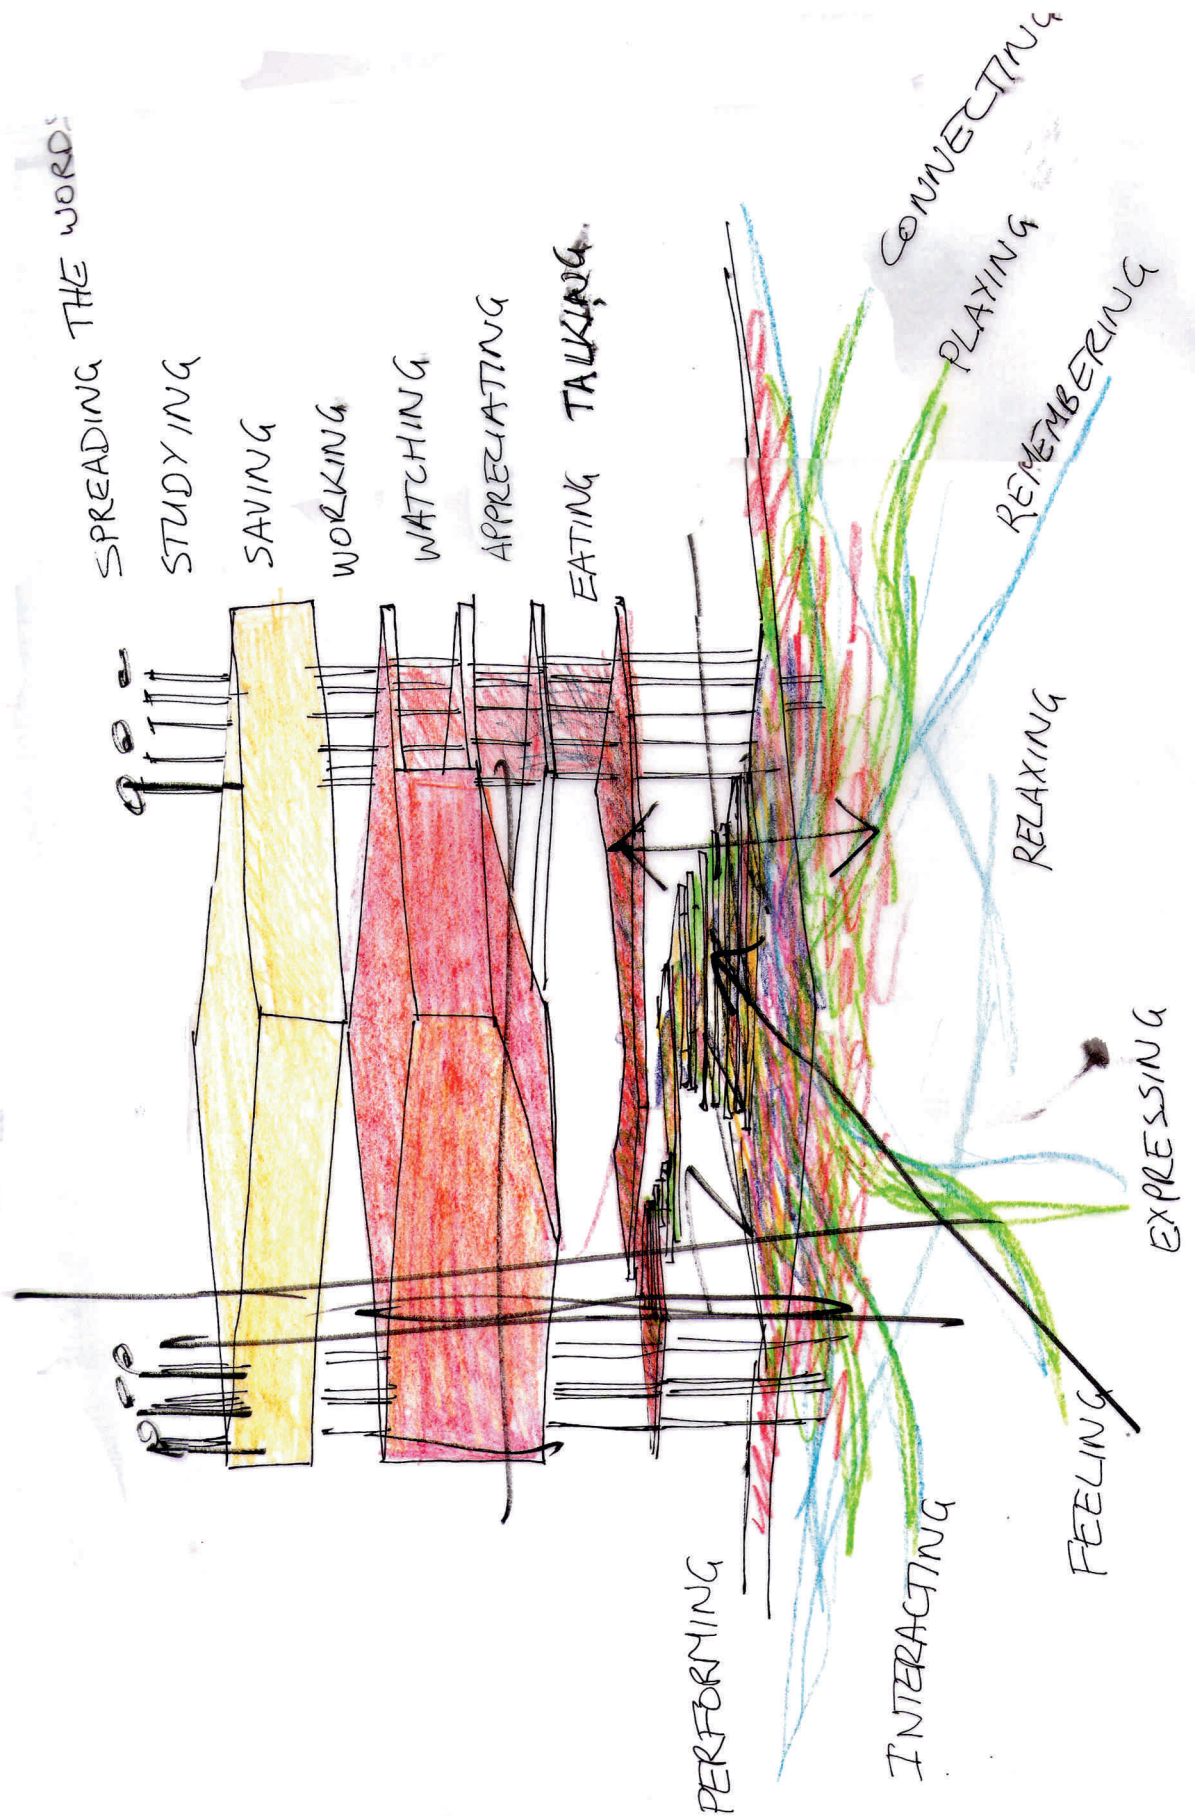 SPREADING THE WORD
STUDYING
SAVING
WORKING
WATCHING
APPRECIATING
EATING TALKING
PERFORMING
INTERACTING
FEELING
EXPRESSING
RELAXING
REMEMBERING
PLAYING
CONNECTING